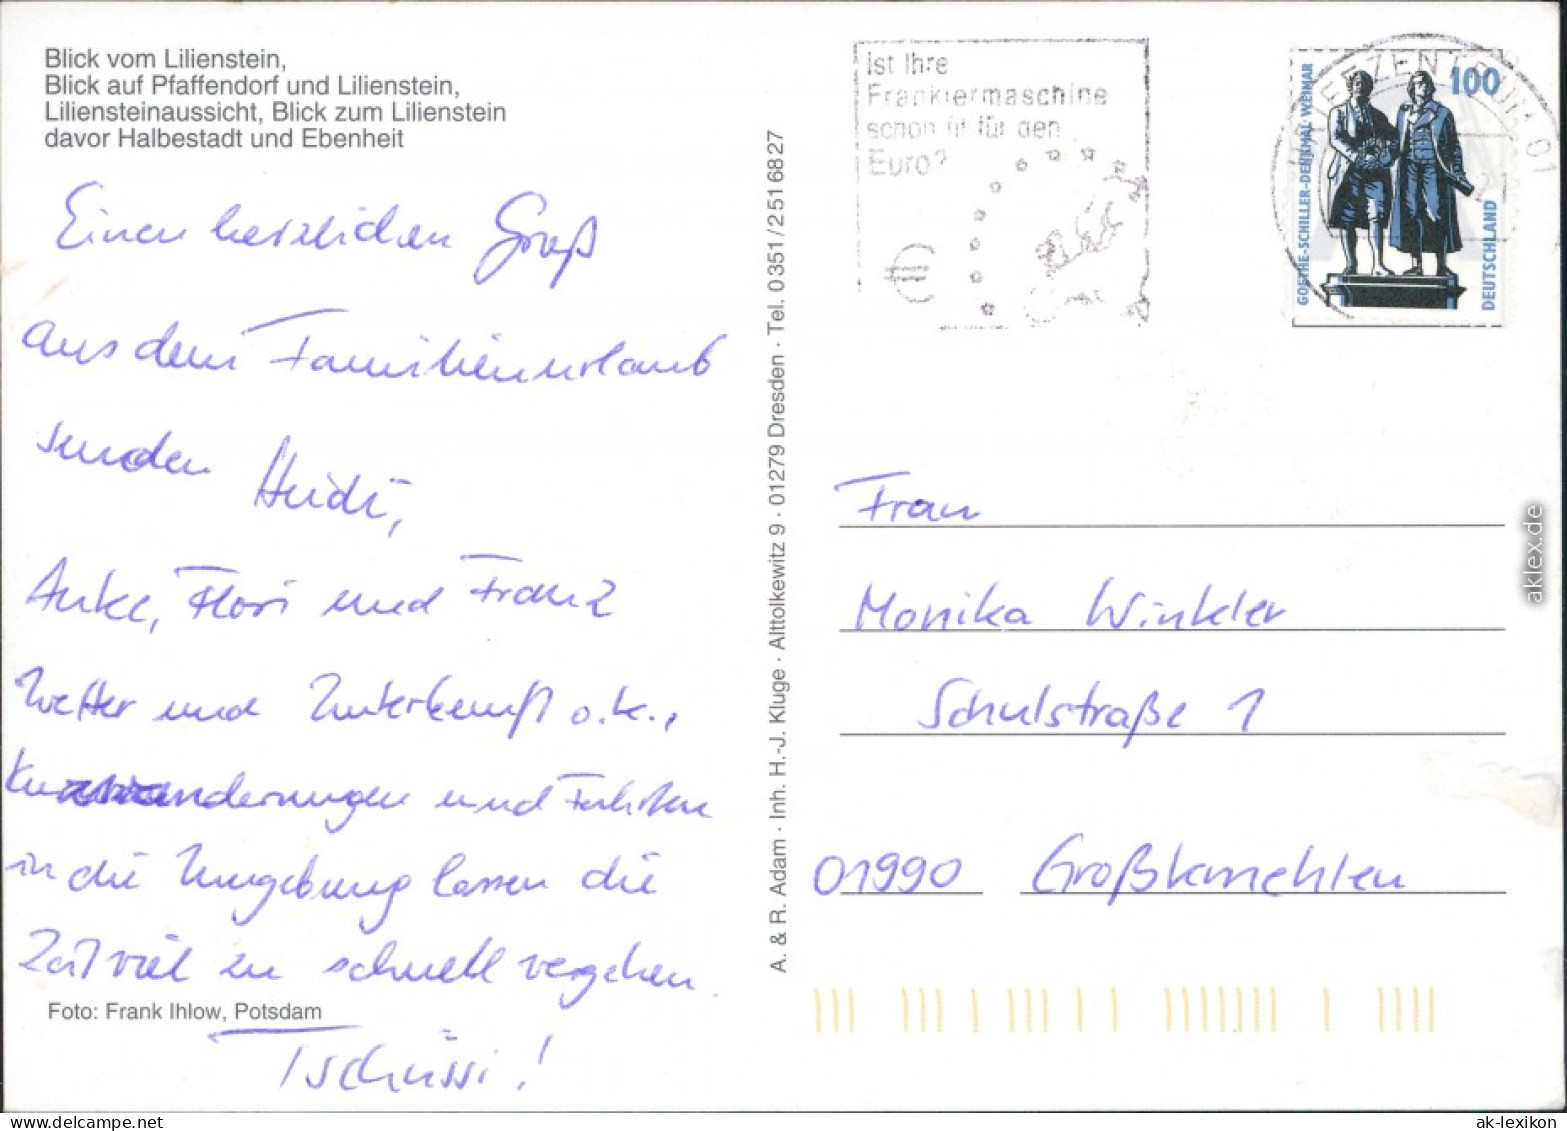 Blick vom Lilienstein,
Blick auf Pfaffendorf und Lilienstein,
Liliensteinaussicht, Blick zum Lilienstein
davor Halbestadt und Ebenheit
Einen herzlichen Gruß
aus dem Familienurlaub
senden Heidi,
Anke, Flori und Franz
Wetter und Unterkunft o.k.,
und Fahrten
in die Umgebung lassen die
Zeit viel zu schnell vergehen.
Foto: Frank Ihlow, Potsdam
Tschüssi!
A. & R. Adam · Inh. H.-J. Kluge · Alttolkewitz 9 · 01279 Dresden · Tel. 0351/2516827
Ist Ihre
Frankiermaschine
schon fit für den
Euro?
€
BRIEFZENTRUM 01
21
100
GOETHE-SCHILLER-DENKMAL·WEIMAR
DEUTSCHLAND
Frau
Monika Winkler
Schulstraße 1
01990 Großkmehlen
aklex.de
ak-lexikon